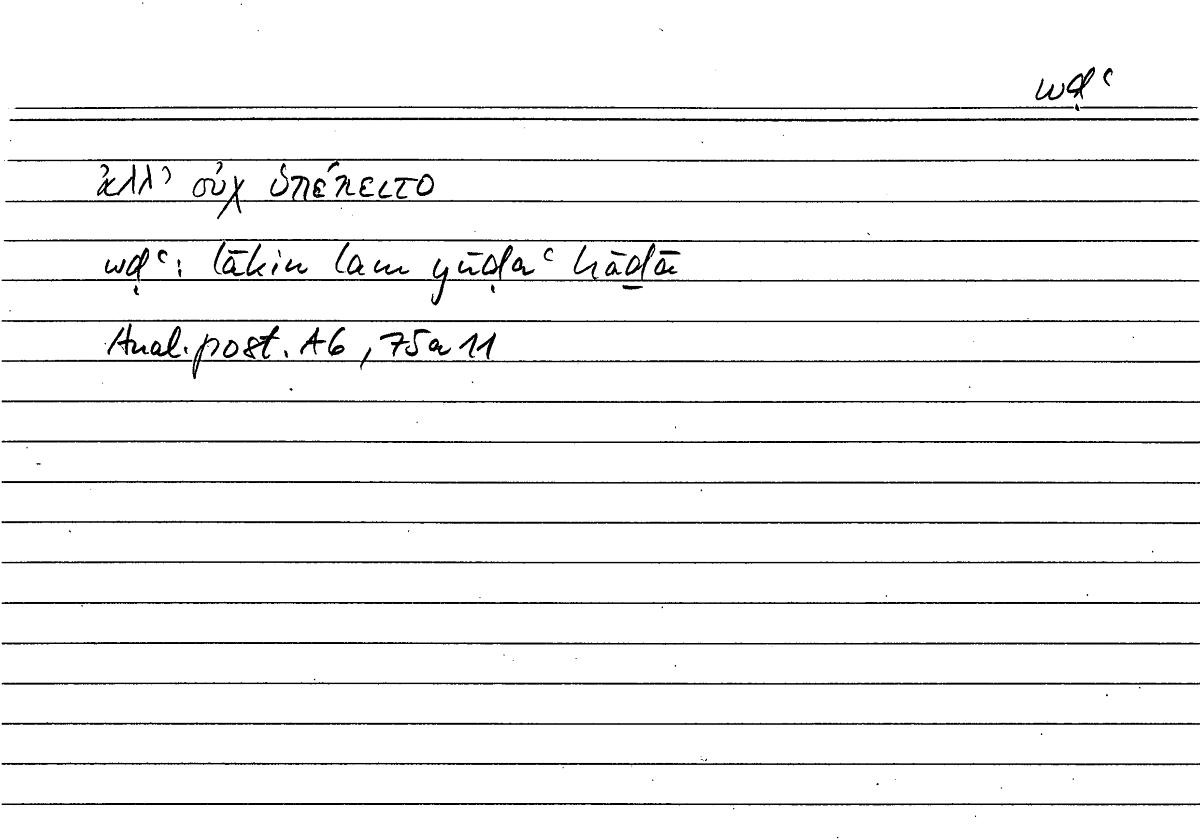 wḍʿ
ἀλλ᾽ οὐχ ὑπέκειτο
wḍʿ: lākin lam yūḍaʿ hāḏā
Anal. post. A6, 75a11